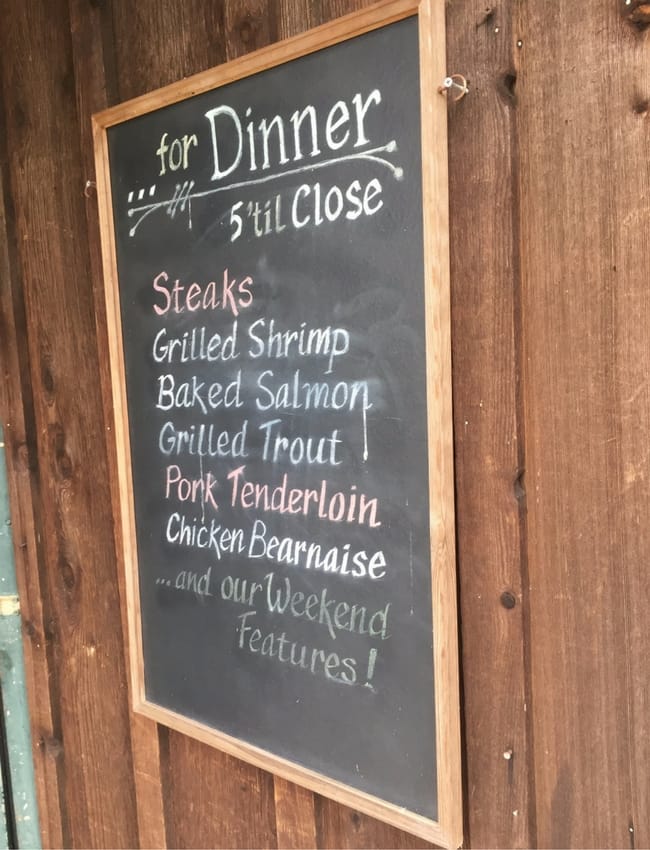 for Dinner
...
5 'til Close
Steaks
Grilled Shrimp
Baked Salmon
Grilled Trout
Pork Tenderloin
Chicken Bearnaise
...and our Weekend
Features!